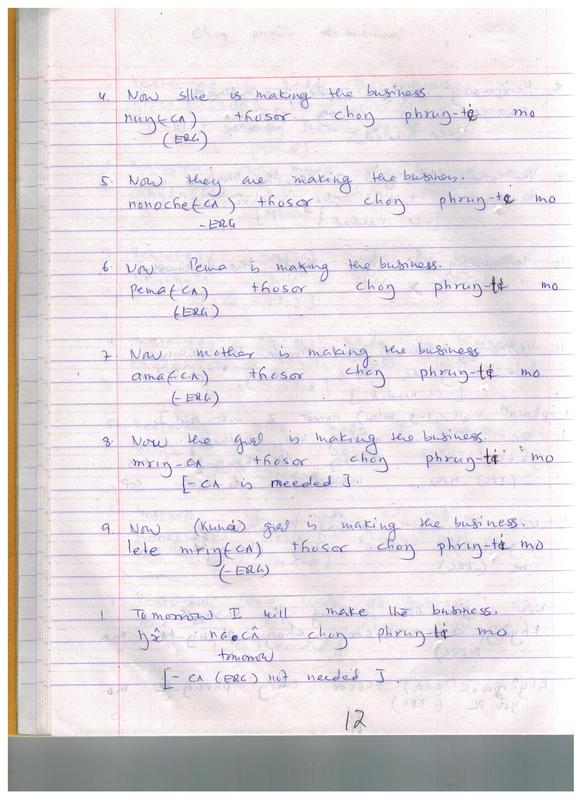 4. Now s/he is making the business.
nuŋ(-cʌ) thosor choŋ phruŋ-tɨ mo
(ERG)
5. Now they are making the business.
nonoche(-cʌ) thosor choŋ phruŋ-tɨ mo
-ERG
6. Now Pema is making the business.
pema(-cʌ) thosor choŋ phruŋ-tɨ mo
(ERG)
7. Now mother is making the business
ama(-cʌ) thosor choŋ phruŋ-tɨ mo
(-ERG)
8. Now the girl is making the business.
mriŋ-cʌ thosor choŋ phruŋ-tɨ mo
[-cʌ is needed].
9. Now (Kunai) girl is making the business.
lete mriŋ(-cʌ) thosor choŋ phruŋ-tɨ mo
(-ERG)
1. Tomorrow I will make the business.
choŋ phruŋ-tɨ mo
tomorrow
[-cʌ (ERG) not needed].
12